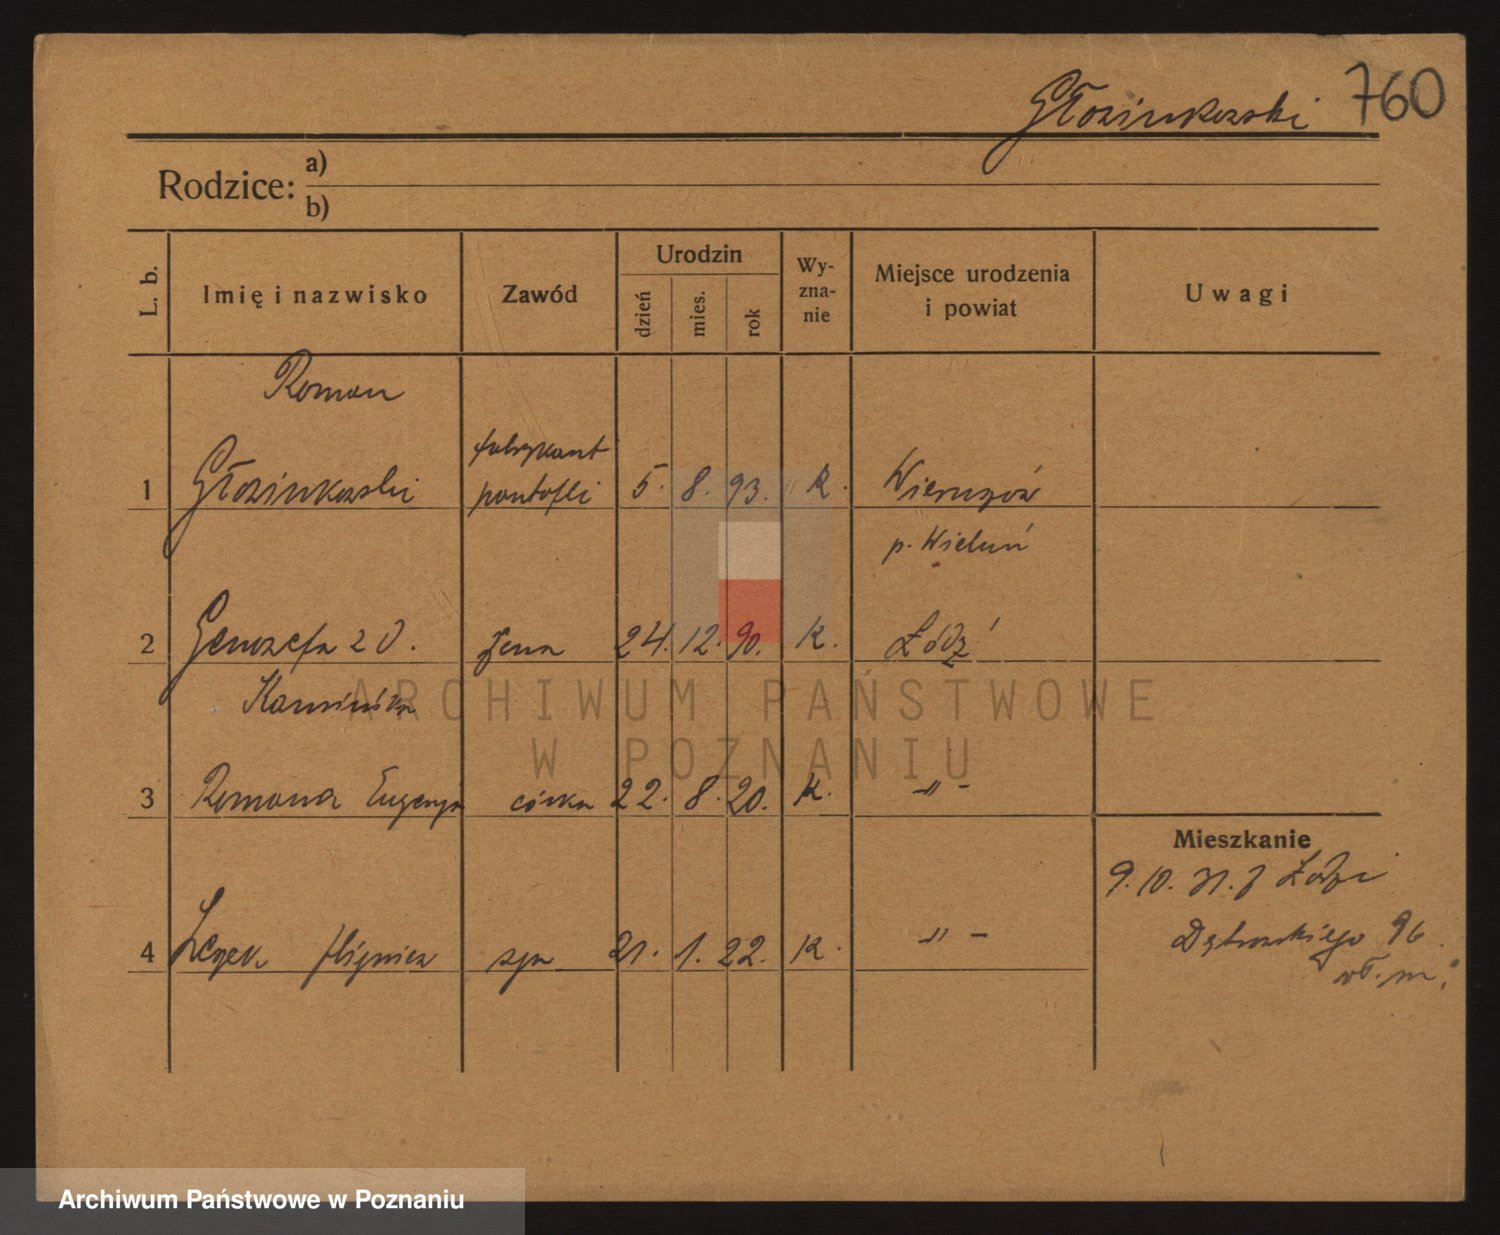 Głozinkowski 760
Rodzice: a)
b)
L. b.
Imię i nazwisko
Zawód
Urodzin
dzień
mies.
rok
Wy-
zna-
nie
Miejsce urodzenia
i powiat
Uwagi
Roman
fabrykant
1 Głozinkowski pantofli 5. 8. 93. K. Wieruszów
p. Wieluń
2 Genozefa z D. żona 24. 12. 90. K. Łódź
Kamińska
3 Romana Eugenja córka 22. 8. 20. K. -"-
Mieszkanie
9. 10. 31. z Łodzi
Dąbrowskiego 96.
wł. m.
4 Leszek Zbigniew syn 21. 1. 22. K. -"-
ARCHIWUM PAŃSTWOWE
W POZNANIU
Archiwum Państwowe w Poznaniu